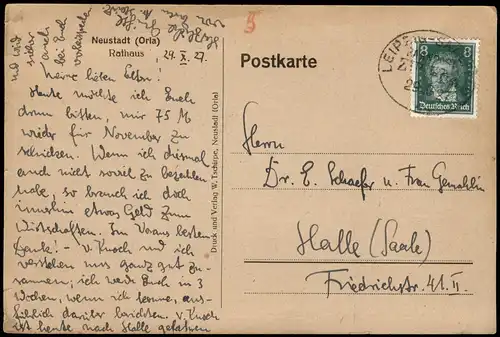 Neustadt (Orla)
Rathaus
24. X. 27.
Meine lieben Eltern!
Heute möchte ich Euch
drum bitten, mir 75 M
wieder für November zu
schicken. Wenn ich diesmal
auch nicht soviel zu bezahlen
habe, so brauch ich doch
immerhin etwas Geld zum
Wirtschaften. Im Voraus besten
Dank! – v. Knoch und ich
verstehen uns ganz gut zu-
sammen; ich werde Euch in 3
Wochen, wenn ich komme, aus-
führlich darüber berichten. v. Knoch
ist heute nach Halle gefahren
und wird
sicher
auch
bei Euch
vorsprechen
Druck und Verlag W. Tschipe, Neustadt (Orla)
5
Postkarte
LEIPZIG
8 8
Deutsches Reich
Herrn
Dr. E. Schaefer u. Frau Gemahlin
Halle (Saale)
Friedrichstr. 41. II.